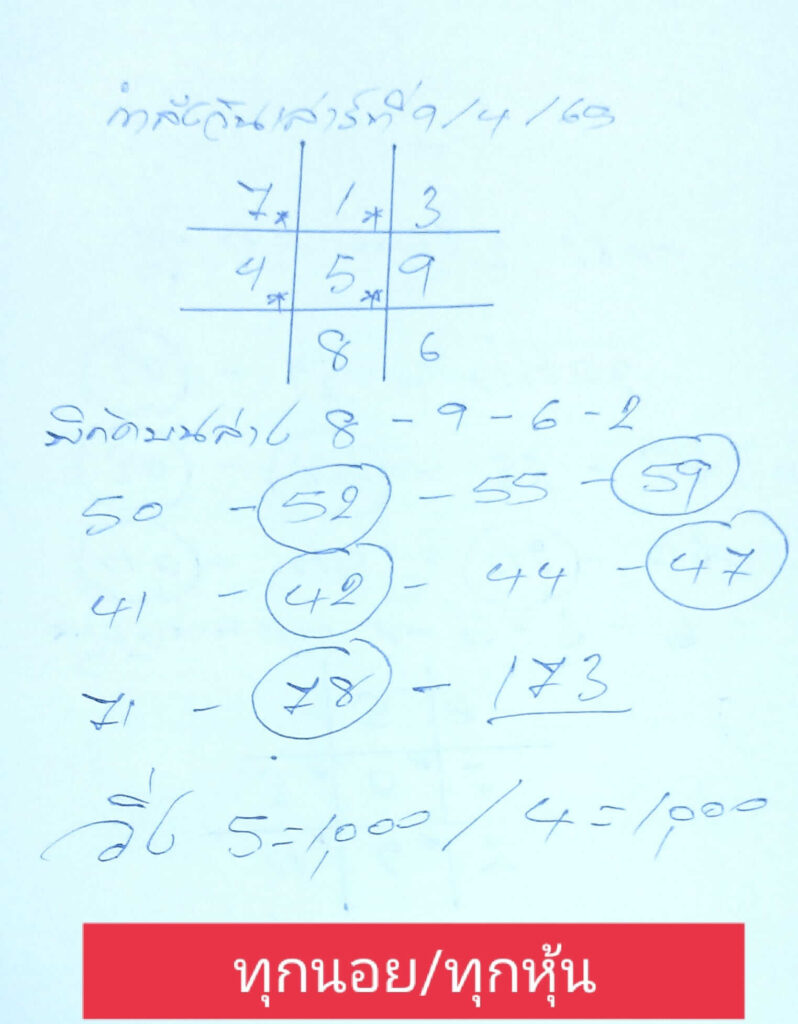 กำลังวันเสาร์ที่ 9/4/69
7* 1* 3
4* 5* 9
8 6
พิกัดบนล่าง 8 - 9 - 6 - 2
50 - 52 - 55 - 59
41 - 42 - 44 - 47
71 - 78 - 173
วิ่ง 5=1,000 / 4=1,000
ทุกนอย/ทุกหุ้น